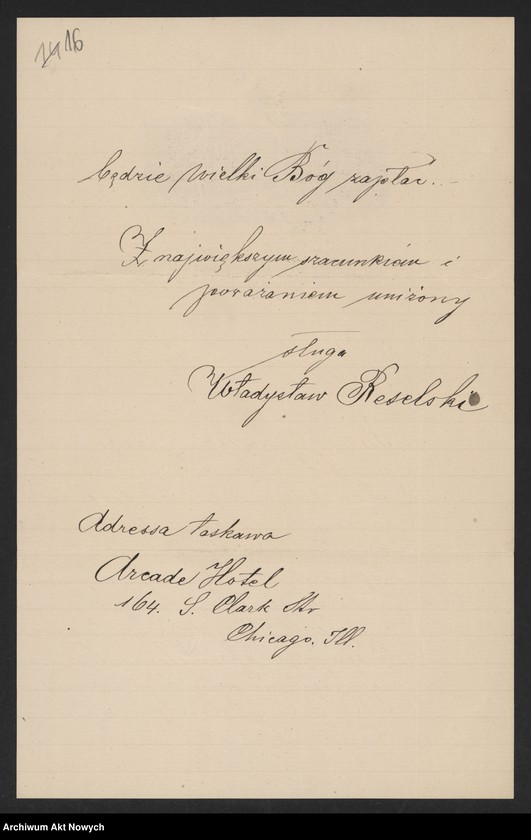 16
będzie wielki Bóg zapłac.
Z największym szacunkiem i
poważaniem uniżony
sługa
Władysław Reselski
Adressa łaskawa
Arcade Hotel
164. S. Clark Str
Chicago. Ill.
Archiwum Akt Nowych